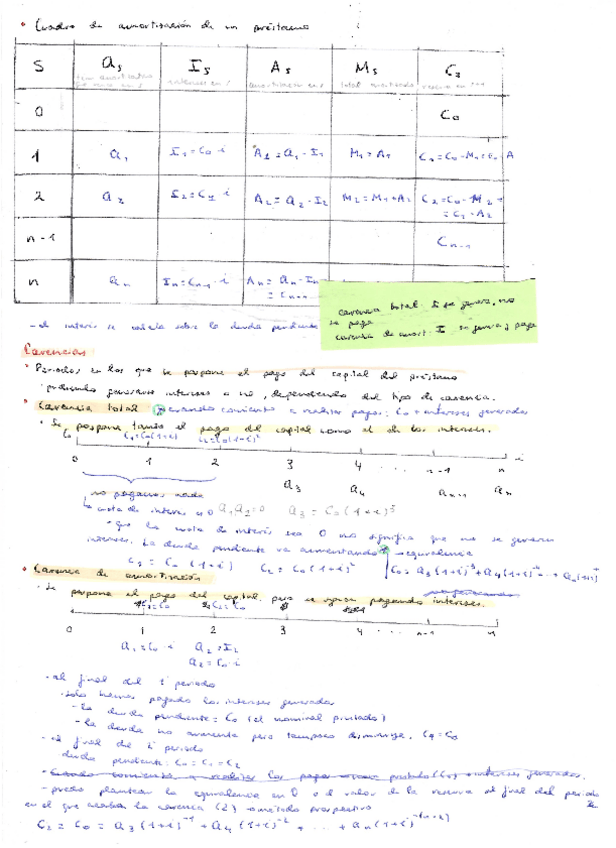 • Cuadro de amortización de un préstamo
S as Is As Ms Cs
total amortizado
0 C₀
1 a₁ I₁ = C₀·i A₁ = a₁ - I₁ M₁ = A₁ C₁ = C₀ - M₁ = C₀ - A
2 a₂ I₂ = C₁·i A₂ = a₂ - I₂ M₂ = M₁ + A₂ C₂ = C₀ - M₂ =
= C₁ - A₂
n-1 Cn-1
n an In = Cn-1·i An = an - In
= Cn-1
carencia total: I se genera, no
se paga
carencia de amort: I se genera y paga
- el interés se calcula sobre la deuda pendiente
Carencias
• Periodos en los que se pospone el pago del capital del préstamo
pudiendo generarse intereses o no, dependiendo del tipo de carencia.
• Carencia total cuando comienzo a realizar pagos: C₀ + intereses generados
• Se pospone tanto el pago del capital como el de los intereses.
C₀ C₁=C₀(1+i) C₂=C₀(1+i)²
0 1 2 3 4 ... n-1 n
a₃ a₄ an-1 an
no pagamos nada
la cuota de interés es 0
• que la cuota de interés sea 0 no significa que no se generen
intereses. La deuda pendiente va aumentando → equivalencia
C₁ = C₀ (1+i) C₂ = C₀ (1+i)²
• Carencia de amortización
• Se pospone el pago del capital pero se siguen pagando intereses.
C₁=C₀ C₂=C₀
0 1 2 3 4 ... n-1 n
a₁ = C₀·i a₂ = I₂
a₂ = C₀·i
- al final del 1º periodo
- solo hemos pagado los intereses generados
- la deuda pendiente = C₀ (el nominal prestado)
- la deuda no aumenta pero tampoco disminuye. C₁ = C₀
- al final del 2º periodo
deuda pendiente: C₀ = C₁ = C₂
- cuando comienza a realizar los pagos prestado (C₀) + intereses generados.
- puedo plantear la equivalencia en 0 o el valor de la reserva al final del periodo
en el que acaba la carencia (2) → método prospectivo
C₂ = C₀ = a₃ (1+i)⁻¹ + a₄ (1+i)⁻² + ... + an (1+i)⁻⁽ⁿ⁻²⁾